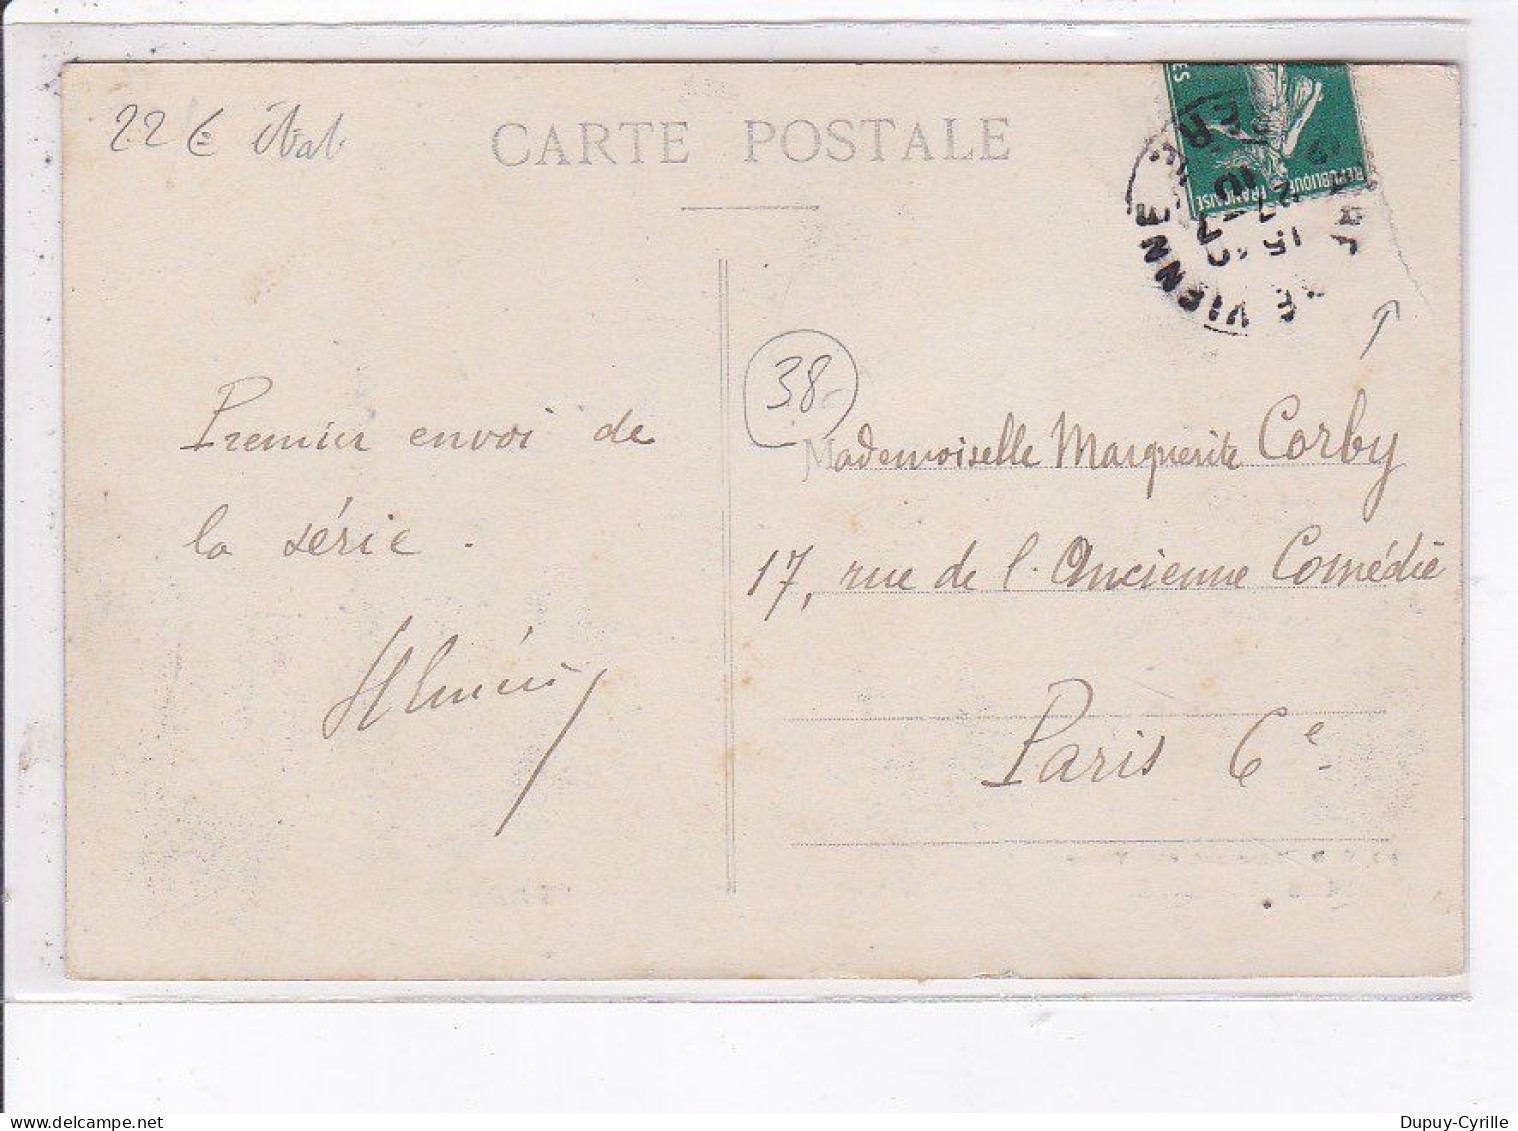 22 €
CARTE POSTALE
RÉPUBLIQUE FRANÇAISE
VIENNE
38
Premier envoi de
la série.
Mademoiselle Marguerite Corby
17, rue de l'Ancienne Comédie
Paris 6e
Dupuy-Cyrille